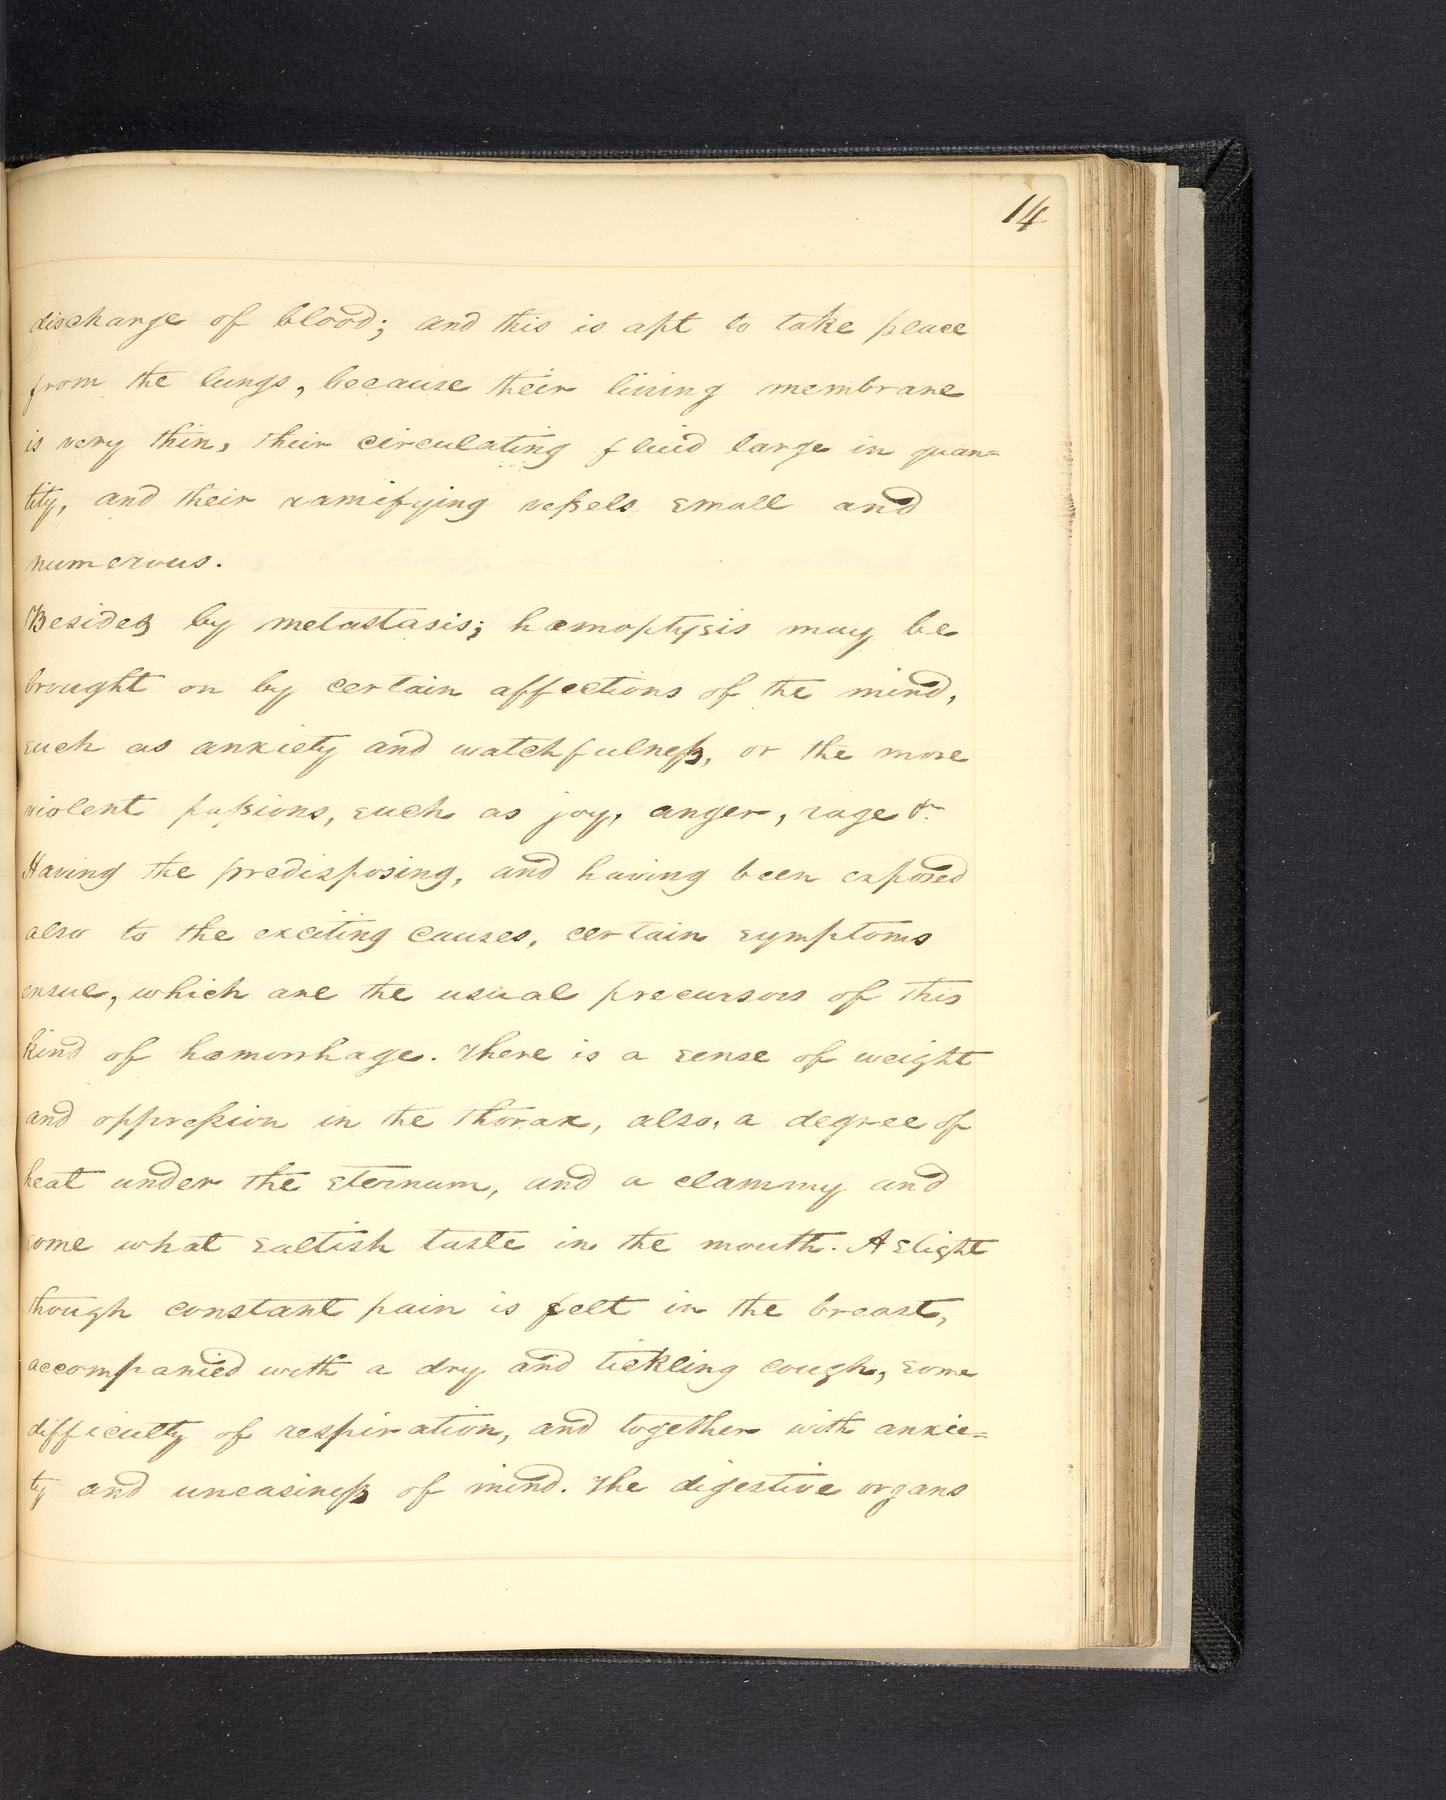 14
discharge of blood; and this is apt to take place
from the lungs, because their lining membrane
is very thin, their circulating fluid large in quan=
tity, and their ramifying vessels small and
numerous.
Besides by metastasis; hæmoptysis may be
brought on by certain affections of the mind,
such as anxiety and watchfulness, or the more
violent passions, such as joy, anger, rage &c
Having the predisposing, and having been exposed
also to the exciting causes, certain symptoms
ensue, which are the usual precursors of this
kind of hæmorrhage. There is a sense of weight
and oppression in the thorax, also, a degree of
heat under the sternum, and a clammy and
some what saltish taste in the mouth. A slight
though constant pain is felt in the breast,
accompanied with a dry and tickling cough, some
difficulty of respiration, and together with anxie=
ty and uneasiness of mind. The digestive organs